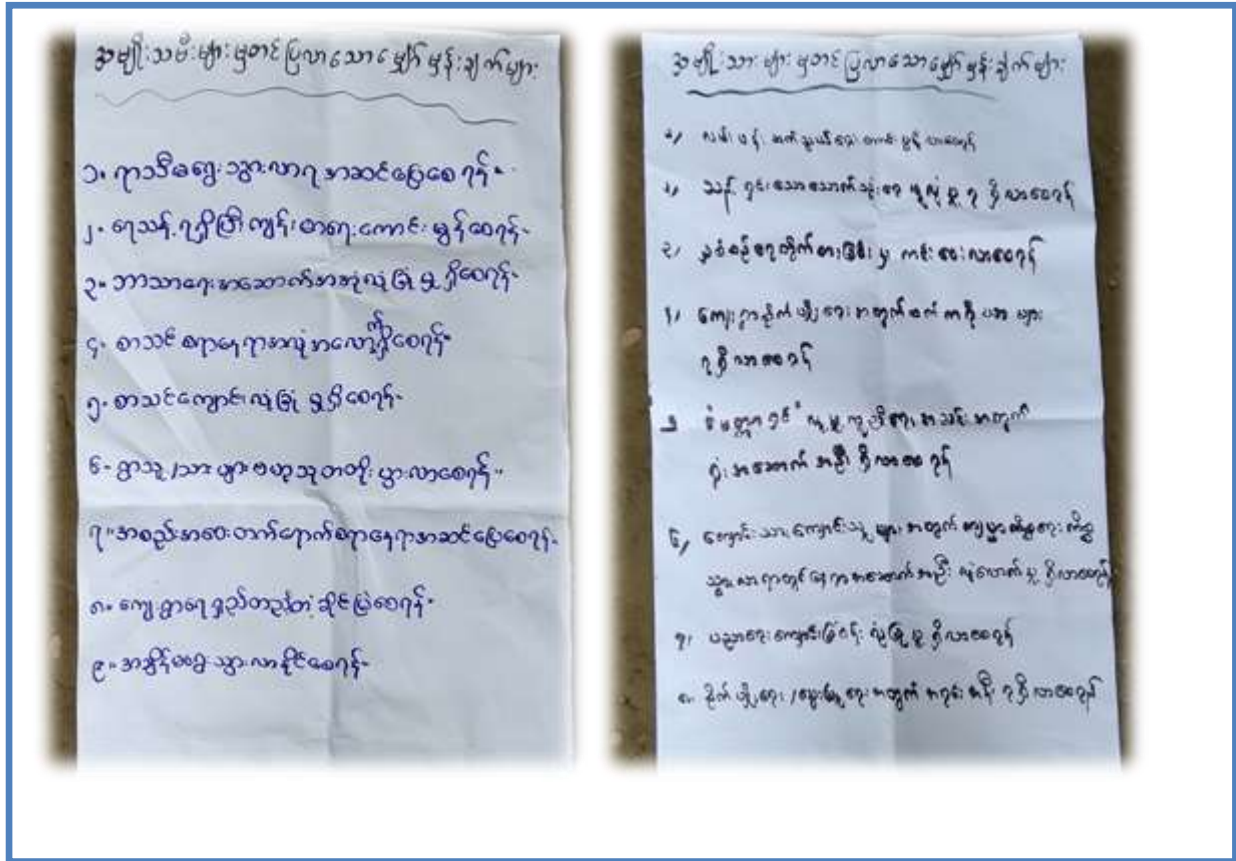 အမျိုးသမီးများမှတင်ပြလာသောမျှော်မှန်းချက်များ
၁။ ရာသီမရွေးသွားလာရအဆင်ပြေစေရန်။
၂။ ရေသန့်ရရှိပြီးကျန်းမာရေးကောင်းမွန်စေရန်။
၃။ ဘာသာရေးအဆောက်အအုံလုံခြုံမှုရှိစေရန်။
၄။ စာသင်စရာနေရာအလုံအလောက်ရှိစေရန်။
၅။ စာသင်ကျောင်းလုံခြုံမှုရှိစေရန်။
၆။ ရွာသူ/သားများဗဟုသုတတိုးပွားလာစေရန်။
၇။ အစည်းအဝေးတက်ရောက်စရာနေရာအဆင်ပြေစေရန်။
၈။ ကျေးရွာရေရှည်တည်တံ့ခိုင်မြဲစေရန်။
၉။ အချိန်မရွေးသွားလာနိုင်စေရန်။
အမျိုးသားများမှတင်ပြလာသောမျှော်မှန်းချက်များ
၁၊ လမ်းပန်းဆက်သွယ်ရေးကောင်းမွန်လာစေရန်
၂၊ သန့်ရှင်းသောသောက်သုံးရေ ရရှိလာစေရန်
၃၊ မှကင်းဝေးလာစေရန်
၄၊ ကျေးရွာဖွံ့ဖြိုးရေးအတွက်
ရရှိလာစေရန်
၅ အသင်းအတွက်
ရုံးအဆောက်အဦးရှိလာစေရန်
၆၊ ကျောင်းသားကျောင်းသူများအတွက်
သွားလာရာတွင်နေရာအဆောက်အဦး ရှိလာစေရန်
၇၊ ပညာရေးကျောင်းခြံဝန်းလုံခြုံမှုရှိလာစေရန်
၈၊ စိုက်ပျိုးရေး/မွေးမြူရေးအတွက် ရရှိလာစေရန်